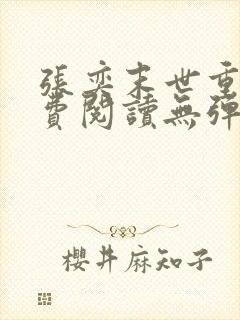 張奕末世重
費閱讀無彈
櫻井麻知子